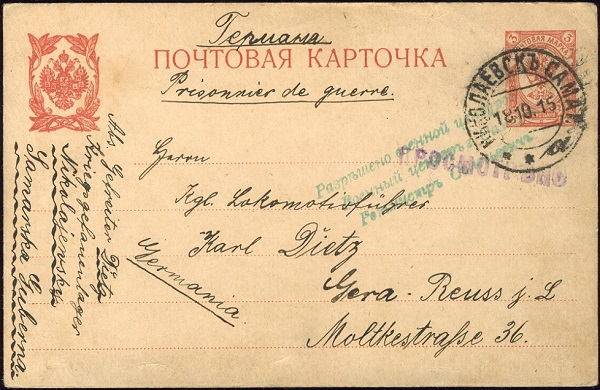 Германiа
ПОЧТОВАЯ КАРТОЧКА
Prisonnier de guerre.
3 ПОЧТОВАЯ МАРКА 3
НИКОЛАЕВСКЪ САМАР.
18.10.15
Разрѣшено военной
Военный цензоръ
ПРОСМОТРѢНО
Herrn
Kgl. Lokomotivführer
Karl Dietz
Gera-Reuss j. L
Moltkestraße 36.
Germania.
Abs. Gefreiter Dietz
Kriegsgefangenlager
Nikolajewsk
Samarska Guberna